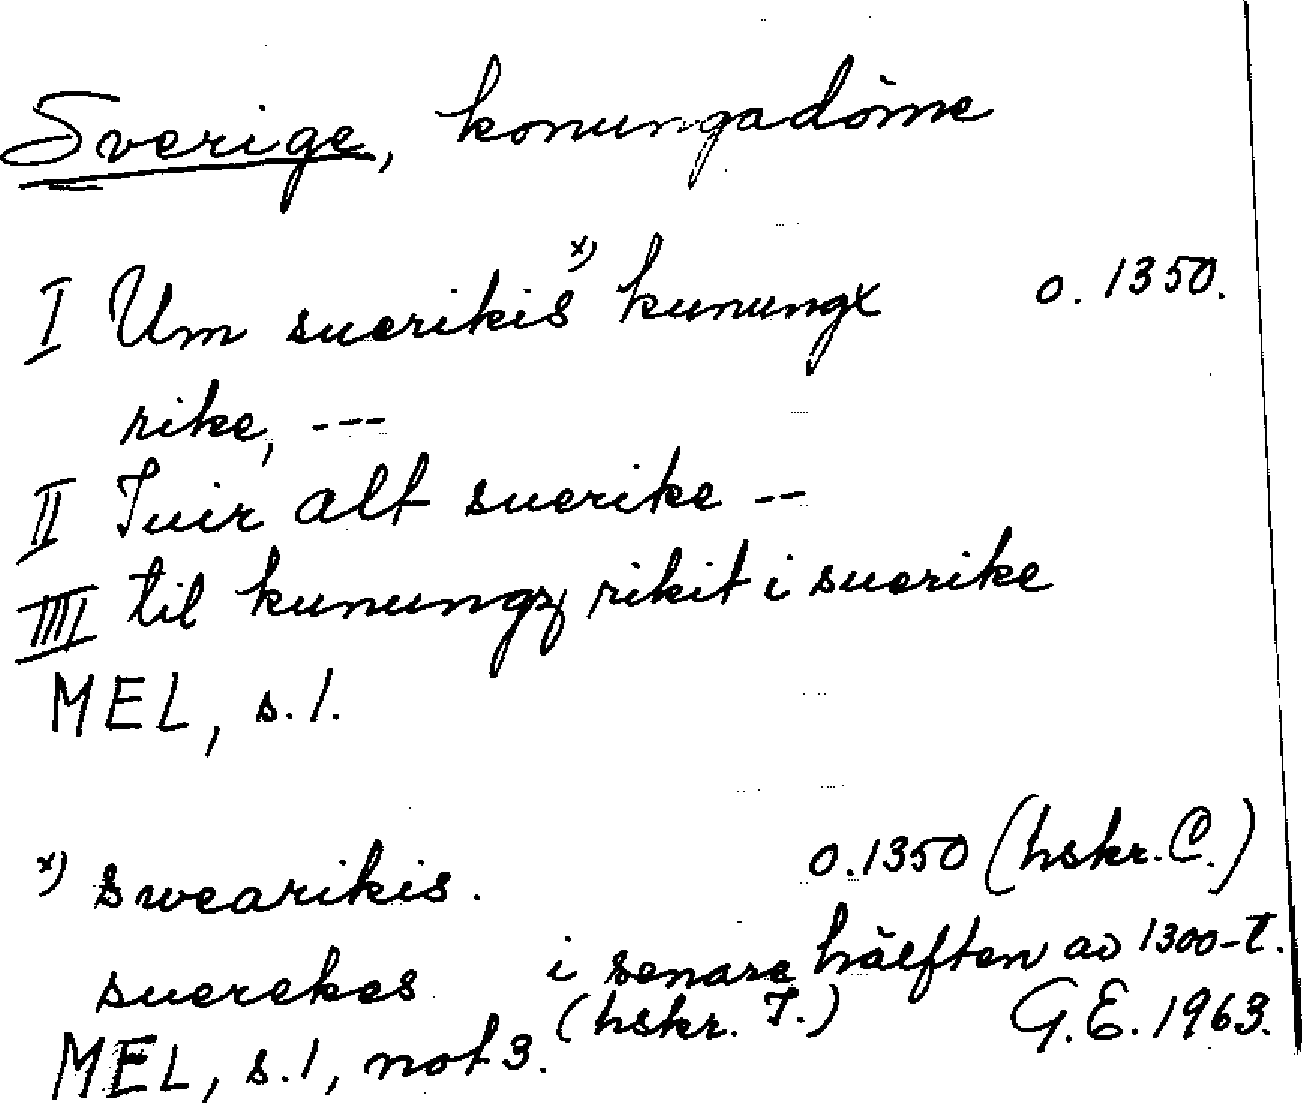 Sverige, konungadöme
I Um suerikis x) kunungx o. 1350.
rike, ---
II Iuir alt suerike --
III til kunungz rikit i suerike
MEL, s. 1.
x) swearikis. o. 1350 (hskr. C.)
suerekes i senare hälften av 1300-t.
(hskr. F.) G.E. 1963.
MEL, s. 1, not 3.